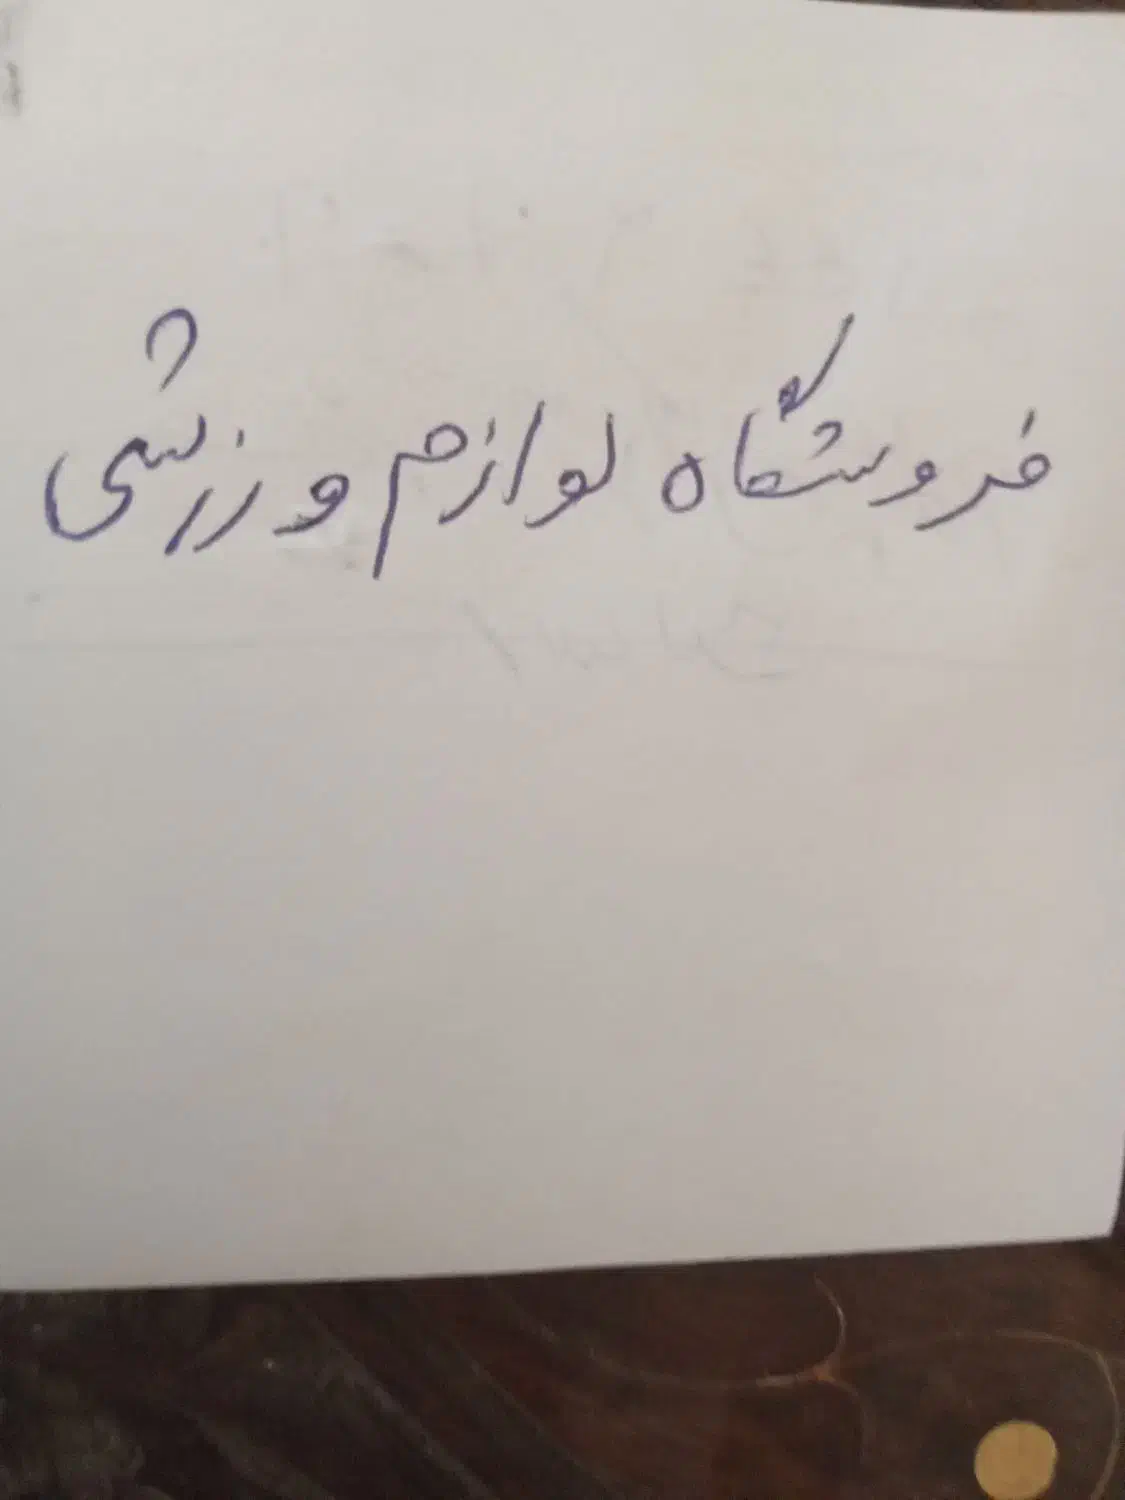 فروشگاه لوازم ورزشی